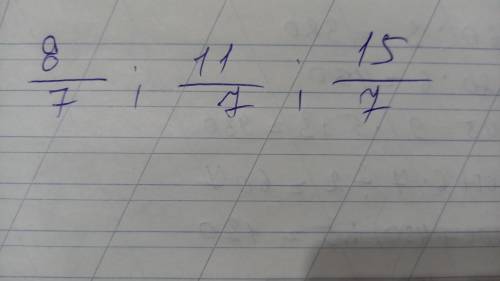 8/7 ; 11/7 ; 15/7